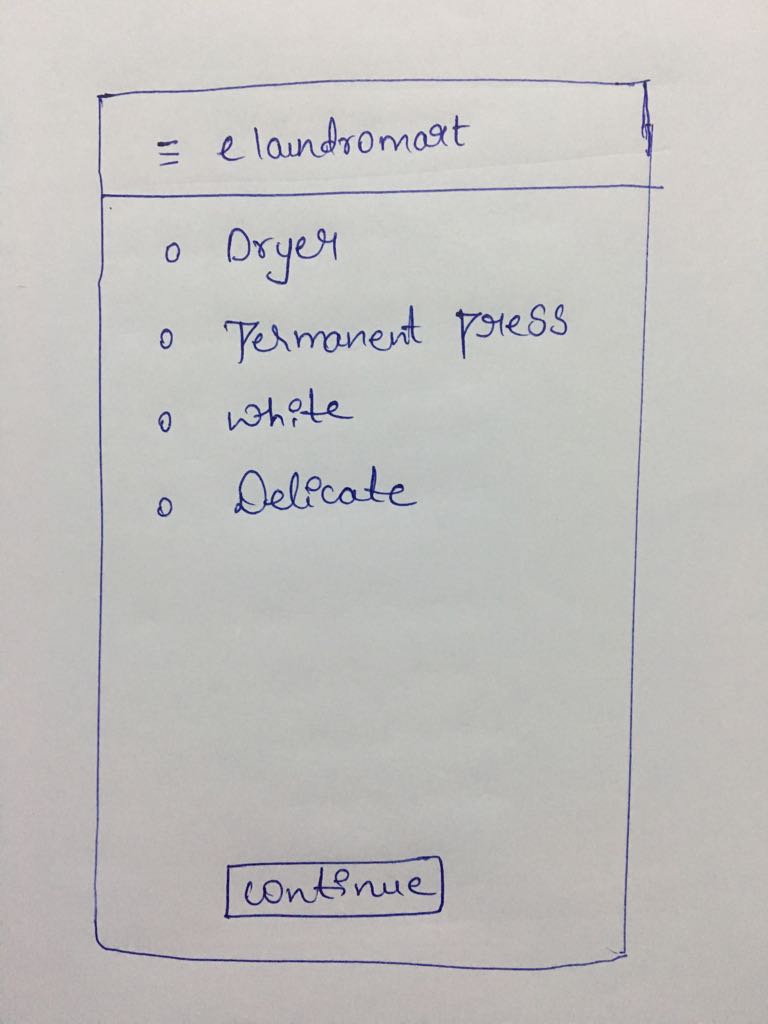 ≡ e laundromart
o Dryer
o Permanent press
o white
o Delicate
continue